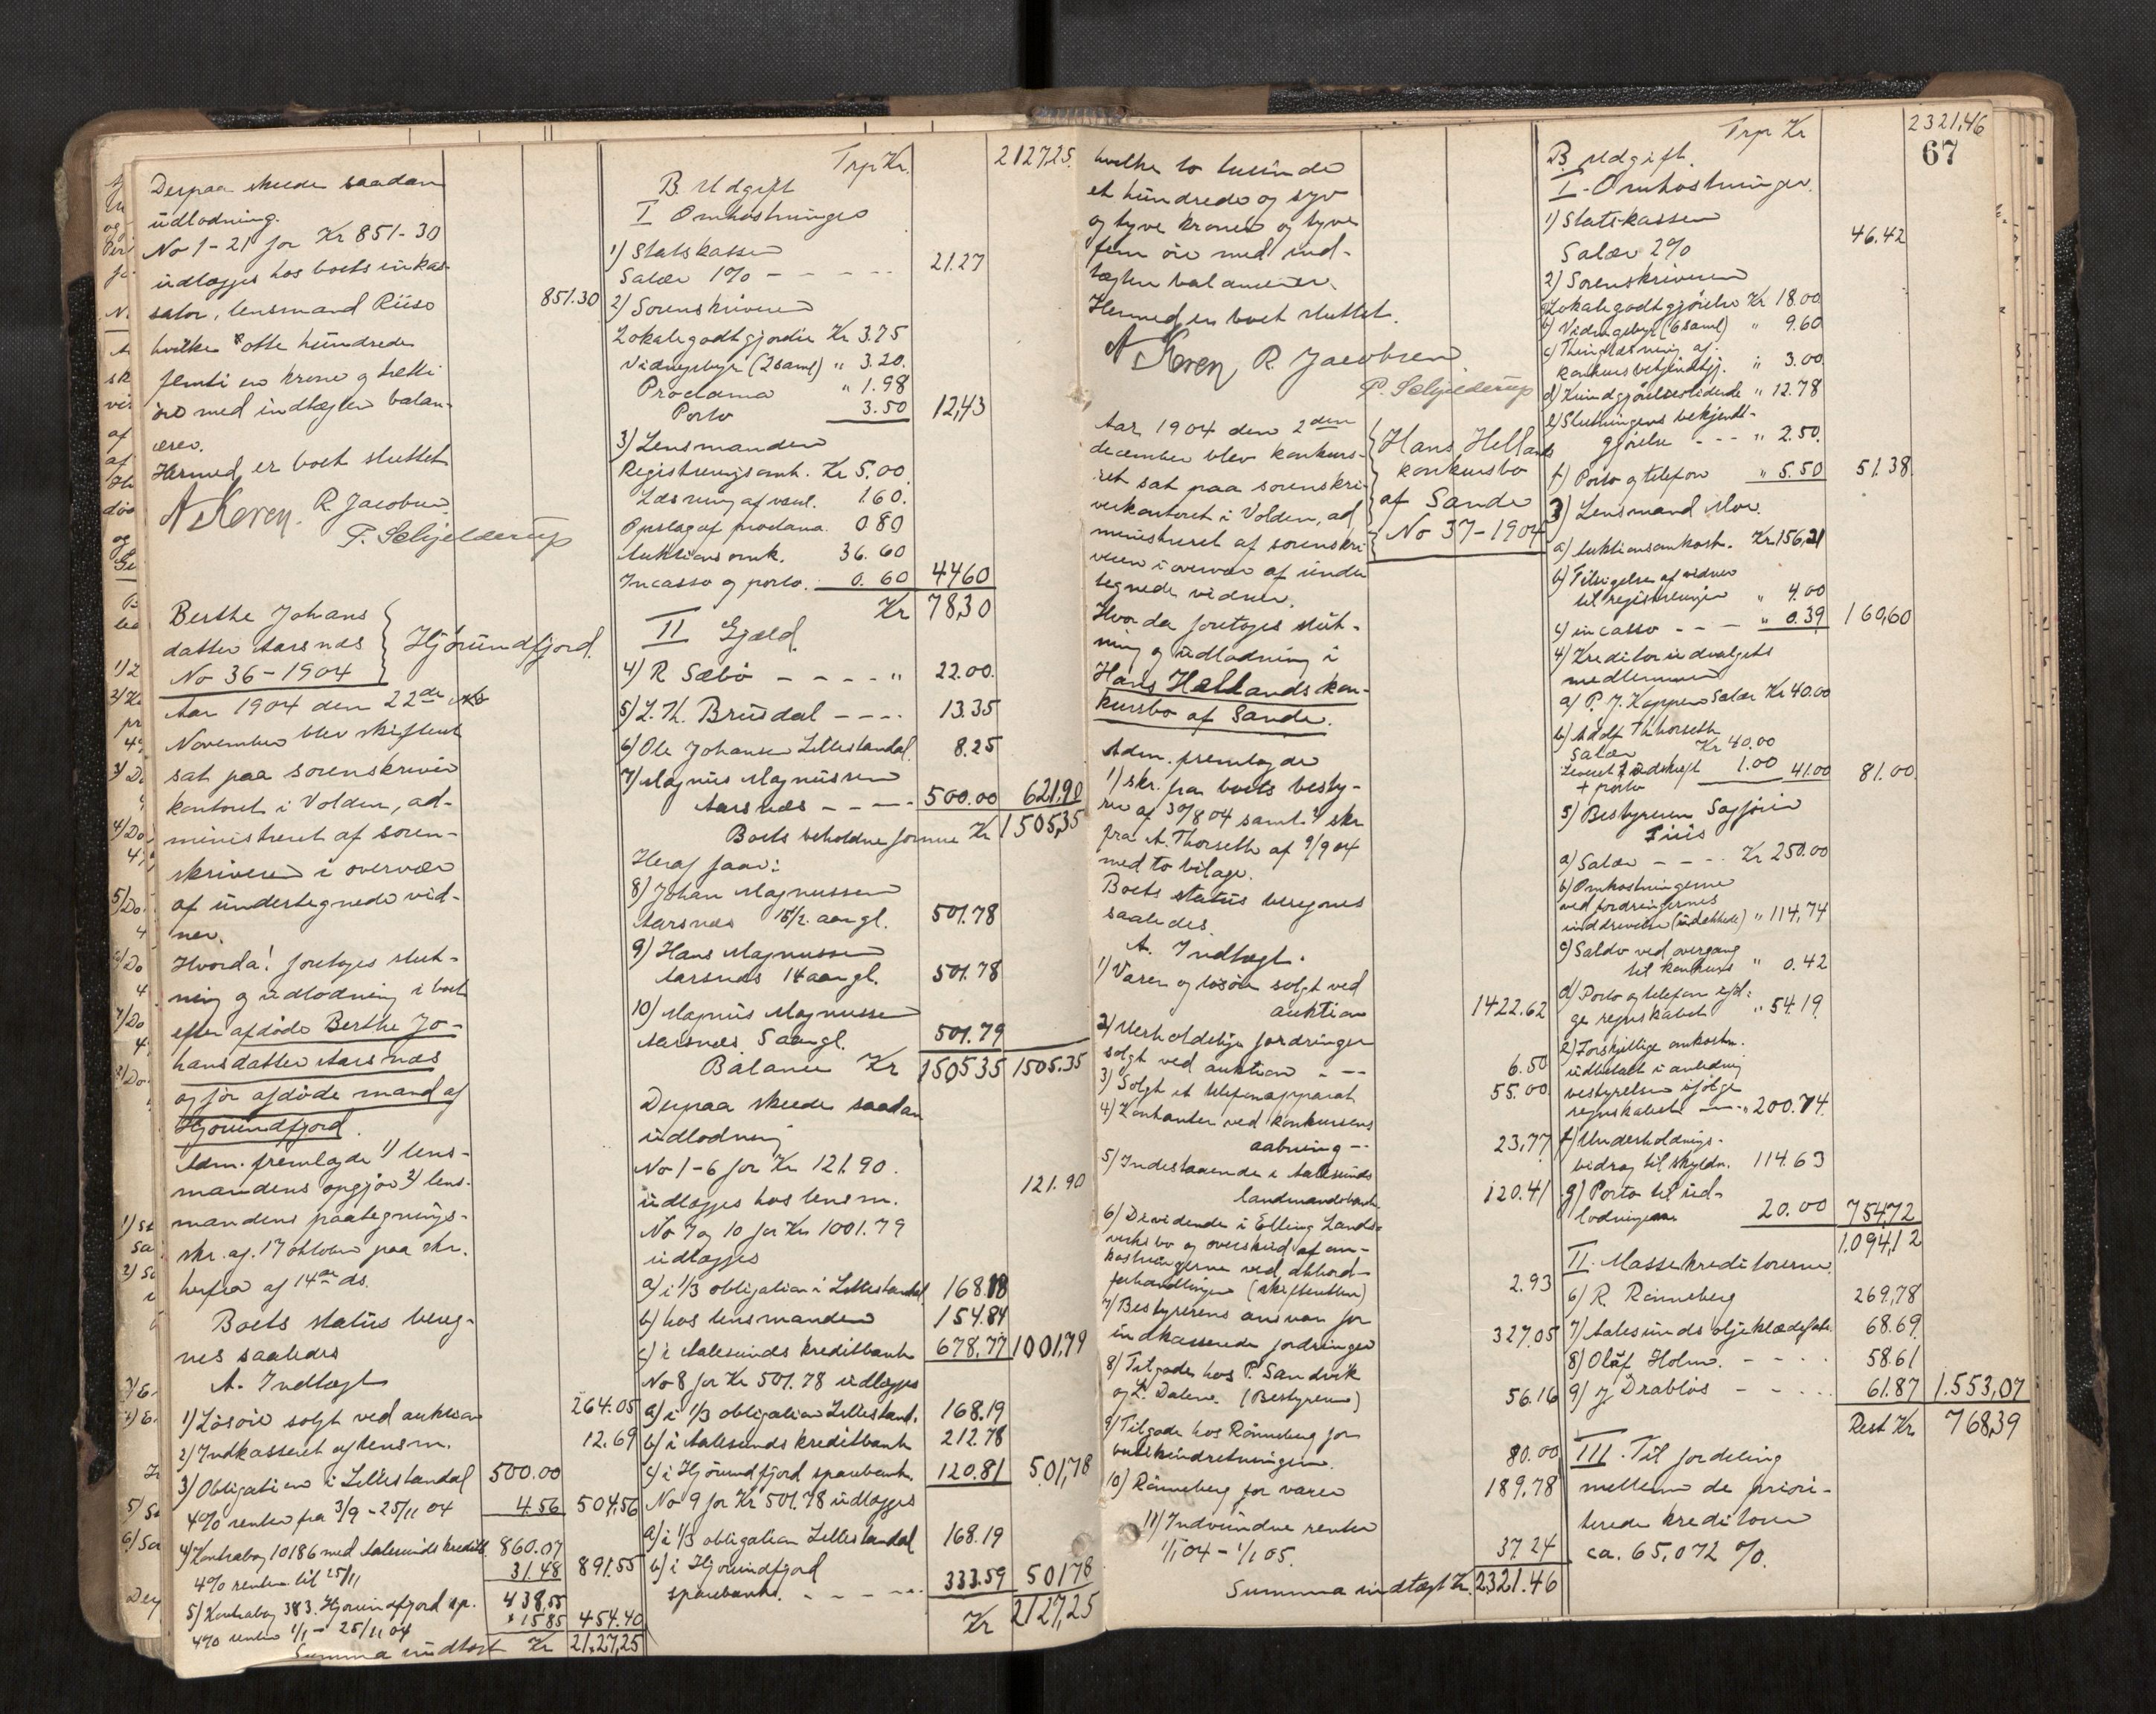 Derpaa skeede saadan
udlodning.
No 1-21 for Kr 851-30
udlægges hos boets inkas-
sator, lensmand Riise 851.30
hvilke otte hundrede
femti en krone og tretti
øre med indtægten balan-
cerer.
Hermed er boet sluttet
R. Jacobsen.
P. Schjelderup
Berthe Johans
datter Aarsnæs
No 36-1904
Hjørundfjord.
Aar 1904 den 22de
November blev skifteret
sat paa sorenskriver
kontoret i Volden, ad-
ministreret af soren-
skriveren i overvær
af undertegnede vid-
ner.
Hvorda! foretoges slut-
ning og udlodning i boet
efter afdøde Berthe Jo-
hansdatter Aarsnæs
og før afdøde mand af
Hjørundfjord.
Adm. fremlagde 1) lens-
mandens opgjør 2) lens-
mandens paategnings-
skr. af 17 oktober paa skr.
herfra af 14de ds.
Boets status bereg-
nes saaledes
A. Indtægt
1) Løsøre solgt ved auktion 264.05
2) Indkasseret af lensm. 12.69
3) Obligation i Lillestandal 500.00
4% renter fra 3/9 - 25/11 04 4.56 504.56
4) Kontrabog 10186 med Aalesunds kreditb. 860.07
4% renter til 25/11 31.48 891.55
5) Kontrabog 383. Hjørundfjord sp. 438.55
4% renter 1/1 - 25/11 04 15.85 454.40
Summa indtægt Kr 2127,25
Trp Kr. 2127,25.
B. Udgift
I Omkostninger
1) Statskassen
Salær 1% - - - - - 21.27
2) Sorenskriveren
Lokalegodtgjørelse Kr 3.75
Vidnegebyr (2 saml) " 3.20.
Proclama " 1.98
Porto 3.50 12,43
3) Lensmanden
Registreringsomk. Kr 5,00
Læsning af 1.60.
Opslag af proclama. 0 80
Auktionsomk. 36.60
Incasso og porto. 0.60 44.60
Kr 78,30
II Gjæld.
4) R Sæbø - - - - " 22.00.
5) L. K. Brudal - - - - 13.35
6) Ole Johansen Lillestandal. 8.25
7) Magnus Magnussen
Aarsnæs - - - - 500.00 621.90
Boets beholdne formue Kr 1505,35
Heraf faar:
8) Johan Magnussen
Aarsnæs 15 1/2 aar gl. 501.78
9) Hans Magnussen
Aarsnæs 14 aar gl. 501.78
10) Magnus Magnussen
Aarsnæs 5 aar gl. 501.79
Balance Kr 1505 35 1505.35
Derpaa skeede saadan
udlodning
No 1-6 for Kr 121.90.
udlægges hos lensm. 121.90
No 7 og 10 for Kr 1001.79
udlægges
a) i 1/3 obligation i Lillestandal 168.18
b) hos lensmanden 154.84
c) i Aalesunds kreditbank 678.77 1001,79
No 8 for Kr 501.78 udlægges
a) i 1/3 obligation Lillestand. 168.19
b) i Aalesunds kreditbank 212.78
c) i Hjørundfjord sparebank. 120.81 501,78
No 9 for Kr 501.78 udlægges
a) i 1/3 obligation Lillestandal 168.19
b) i Hjørundfjord
sparebank. - - - - 333.59 501 78
Kr 2127,25
hvilke to tusinde
et hundrede og syv
og tyve kroner og tyve
fem øre med ind-
tægten balancerer.
Hermed er boet sluttet.
R. Jacobsen
P. Schjelderup
Aar 1904 den 2den
december blev konkurs-
ret sat paa sorenskri-
verkontoret i Volden, ad
ministreret af sorenskri-
veren i overvær af under
tegnede vidner.
Hans Hellands
konkursbo
af Sande
No 37-1904
Hvorda foretoges slut-
ning og udlodning i
Hans Hellands kon-
kursbo af Sande.
Adm. fremlagde
1) skr. fra boets besty-
rer af 30/8 04 samt 2) skr
fra A. Thorseth af 9/9 04
med to bilage.
Boets status beregnes
saaledes.
A. Indtægt.
1) Varer og løsøre solgt ved
auktion 1422.62
2) Uerholdelige fordringer
solgt ved auktion - - - 6.50
3) Solgt et telefonapparat 55.00
4) Kontanter ved konkursens
aabning - - 23,77
5) Indestaaende i Aalesunds
landmandsbank 120.41
6) Dividende i Elling Lands-
verks bo og overskud af om-
kostningerne ved akkord-
forhandlingen (skifteretten) 2.93
7) Bestyrerens ansvar for
indkasserede fordringer 327.05
8) Tilgode hos P. Sandvik
og L. Dalen. (Bestyreren) 56.16
9) Tilgode hos Rønneberg for
butikindretningen. 80.00
10) Rønneberg for varer 189.78
11) Indvundne renter
1/1 04 - 1/1 05. 37 24
Summa indtægt Kr. 2321.46
Trp Kr 2321,46
67
B. Udgift.
I. Omkostninger.
1) Statskassen
Salær 2% 46.42
2) Sorenskriveren
a) Lokalegodtgjørelse Kr 18.00
b) Vidnegebyr (6 saml) " 9.60
c) Thinglæsning af
konkursbekjendtgj. " 3.00
d) Kundgjørelsestidende " 12.78
e) Slutningens bekjendt-
gjørelse - - - " 2.50.
f) Porto og telefon " 5.50 51.38.
3) Lensmand Moe.
a) Auktionsomkost. Kr. 156,21
b) Tilsigelse af vidner
til registreringen " 4.00
c) incasso - - - " 0.39 160,60
4) Kreditorudvalgets
medlemmer
a) P. J. Koppen Salær Kr 40.00
b) Adolf Thorseth
Salær Kr 40.00
Leveret udskrift
+ porto 1.00 41.00 81.00.
5) Bestyreren Sagfører
a) Salær - - - - Kr 250.00
b) Omkostningerne
ved fordringernes
inddrivelse (udækkede) " 114,74
c) Saldo ved overgang
til konkurs " 0.42
d) Porto og telefon iføl-
ge regnskabet " 54.19
e) Forskjellige omkostn.
udbetalt i anledning
bestyrelsen ifølge
regnskabet - - " 200.74.
f) Underholdnings-
bidrag til skyldn. 114.63
g) Porto til ud-
lodningerne 20.00 754,72
1.094,12
II. Massekreditorerne.
6) R. Rønneberg 269,78
7) Aalesunds oljeklædefabr. 68.69
8) Olaf Holm. - - - - 58.61
9) J. Drabløs - - - - 61.87 1.553,07
Rest Kr. 768,39
III. Til fordeling
mellem de priori-
terede kreditorer
ca. 65,072 %.